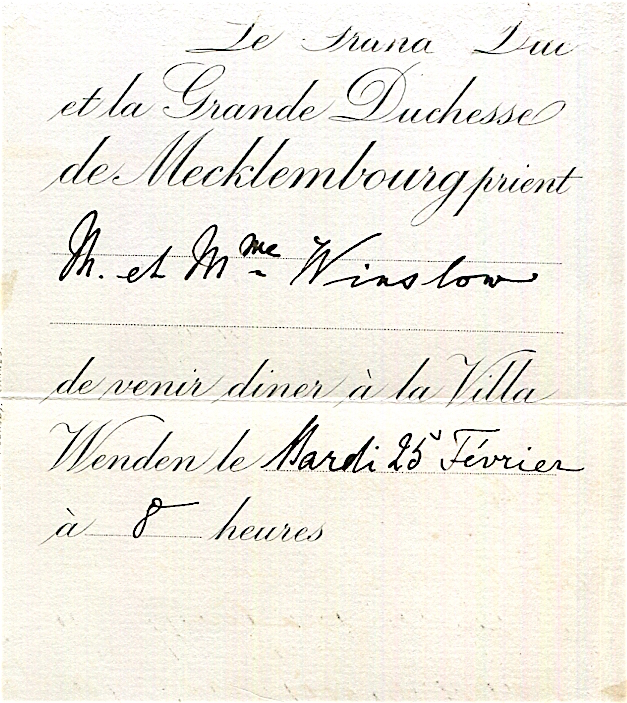 Le Grand Duc
et la Grande Duchesse
de Mecklembourg prient
M. et Mme Winslow
de venir diner à la Villa
Wenden le Mardi 25 Février
à 8 heures